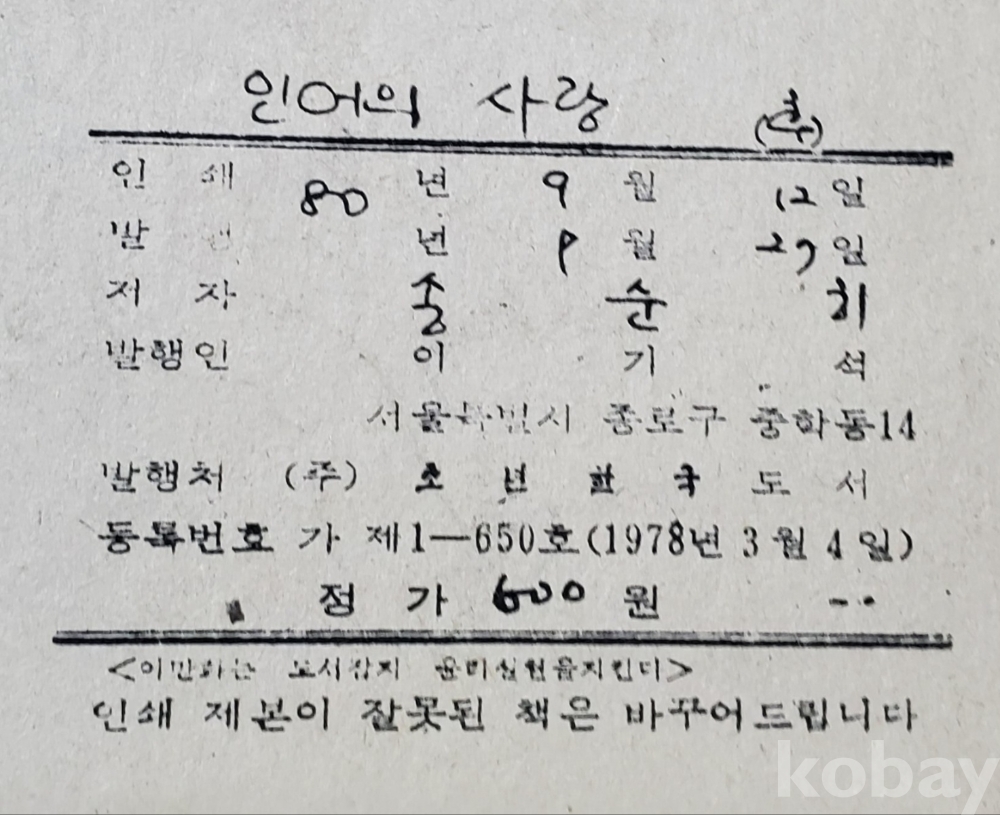 인어의 사랑
인 쇄 80 년 9 월 12 일
발 행 년 9 월 27 일
저 자 송 순 히
발행인 이 기 석
서울특별시 종로구 중학동14
발행처 (주) 소 년 한 국 도 서
등록번호 가 제1—650호(1978년 3월 4일)
정 가 600 원
<이만화는 도서잡지 윤리실천을지킨다>
인쇄 제본이 잘못된 책은 바꾸어드립니다
kobay